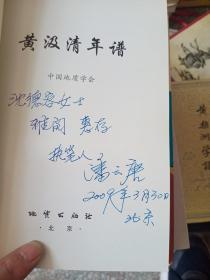 黄汲清年谱
中国地质学会
沈德容女士
雅阅 惠存
执笔人
潘云唐
2009年3月30日
北京
地质出版社
·北京·